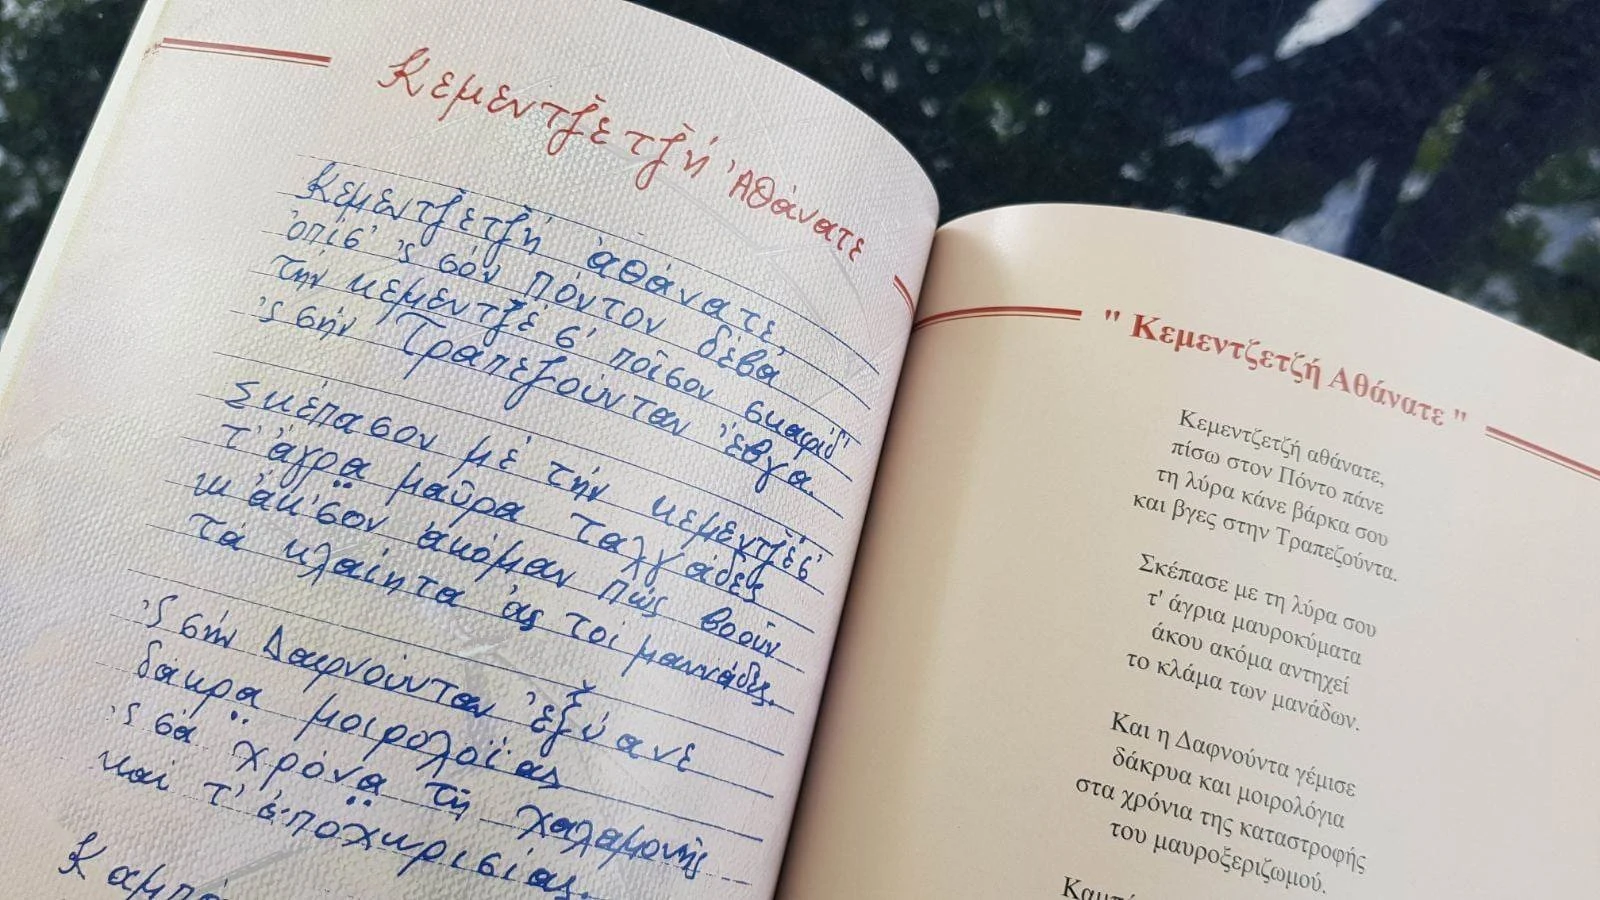 Κεμεντζ̌ετζ̌ή 'Αθάνατε
Κεμεντζ̌ετζ̌ή ἀθάνατε,
ὀπίσ' 'ς σόν Πόντον δέβα
τήν κεμεντζ̌έ σ' ποῖσον σκαφίδ'
'ς σήν Τραπεζούνταν ἔβγα.
Σκέπασον μέ τήν κεμεντζ̌έ σ'
τ' ἄγρα̤ μαῦρα ταλγάδες
κι ἄκ'σον ἀκόμαν πώς βοοῦν
τά κλαίητα ἀς τοί μαννάδες.
'ς σήν Δαφνούνταν ἐξ̌ύανε
δάκρα̤ μοιρολοΐας
'ς σά χρόνα̤ τῆ χαλαμονῆς
καί τ' ἐποχ̌κρισίας.
Καμπά
" Κεμεντζετζή Αθάνατε "
Κεμεντζετζή αθάνατε,
πίσω στον Πόντο πάνε
τη λύρα κάνε βάρκα σου
και βγες στην Τραπεζούντα.
Σκέπασε με τη λύρα σου
τ' άγρια μαυροκύματα
άκου ακόμα αντηχεί
το κλάμα των μανάδων.
Και η Δαφνούντα γέμισε
δάκρυα και μοιρολόγια
στα χρόνια της καταστροφής
του μαυροξεριζωμού.